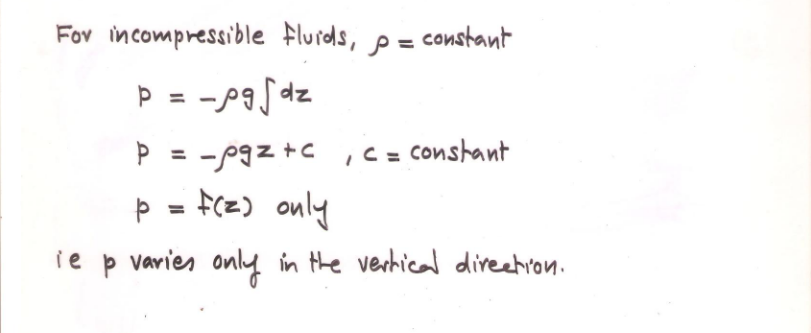 For incompressible fluids, ρ = constant
p = -ρg∫dz
p = -ρgz + c , c = constant
p = f(z) only
ie p varies only in the vertical direction.